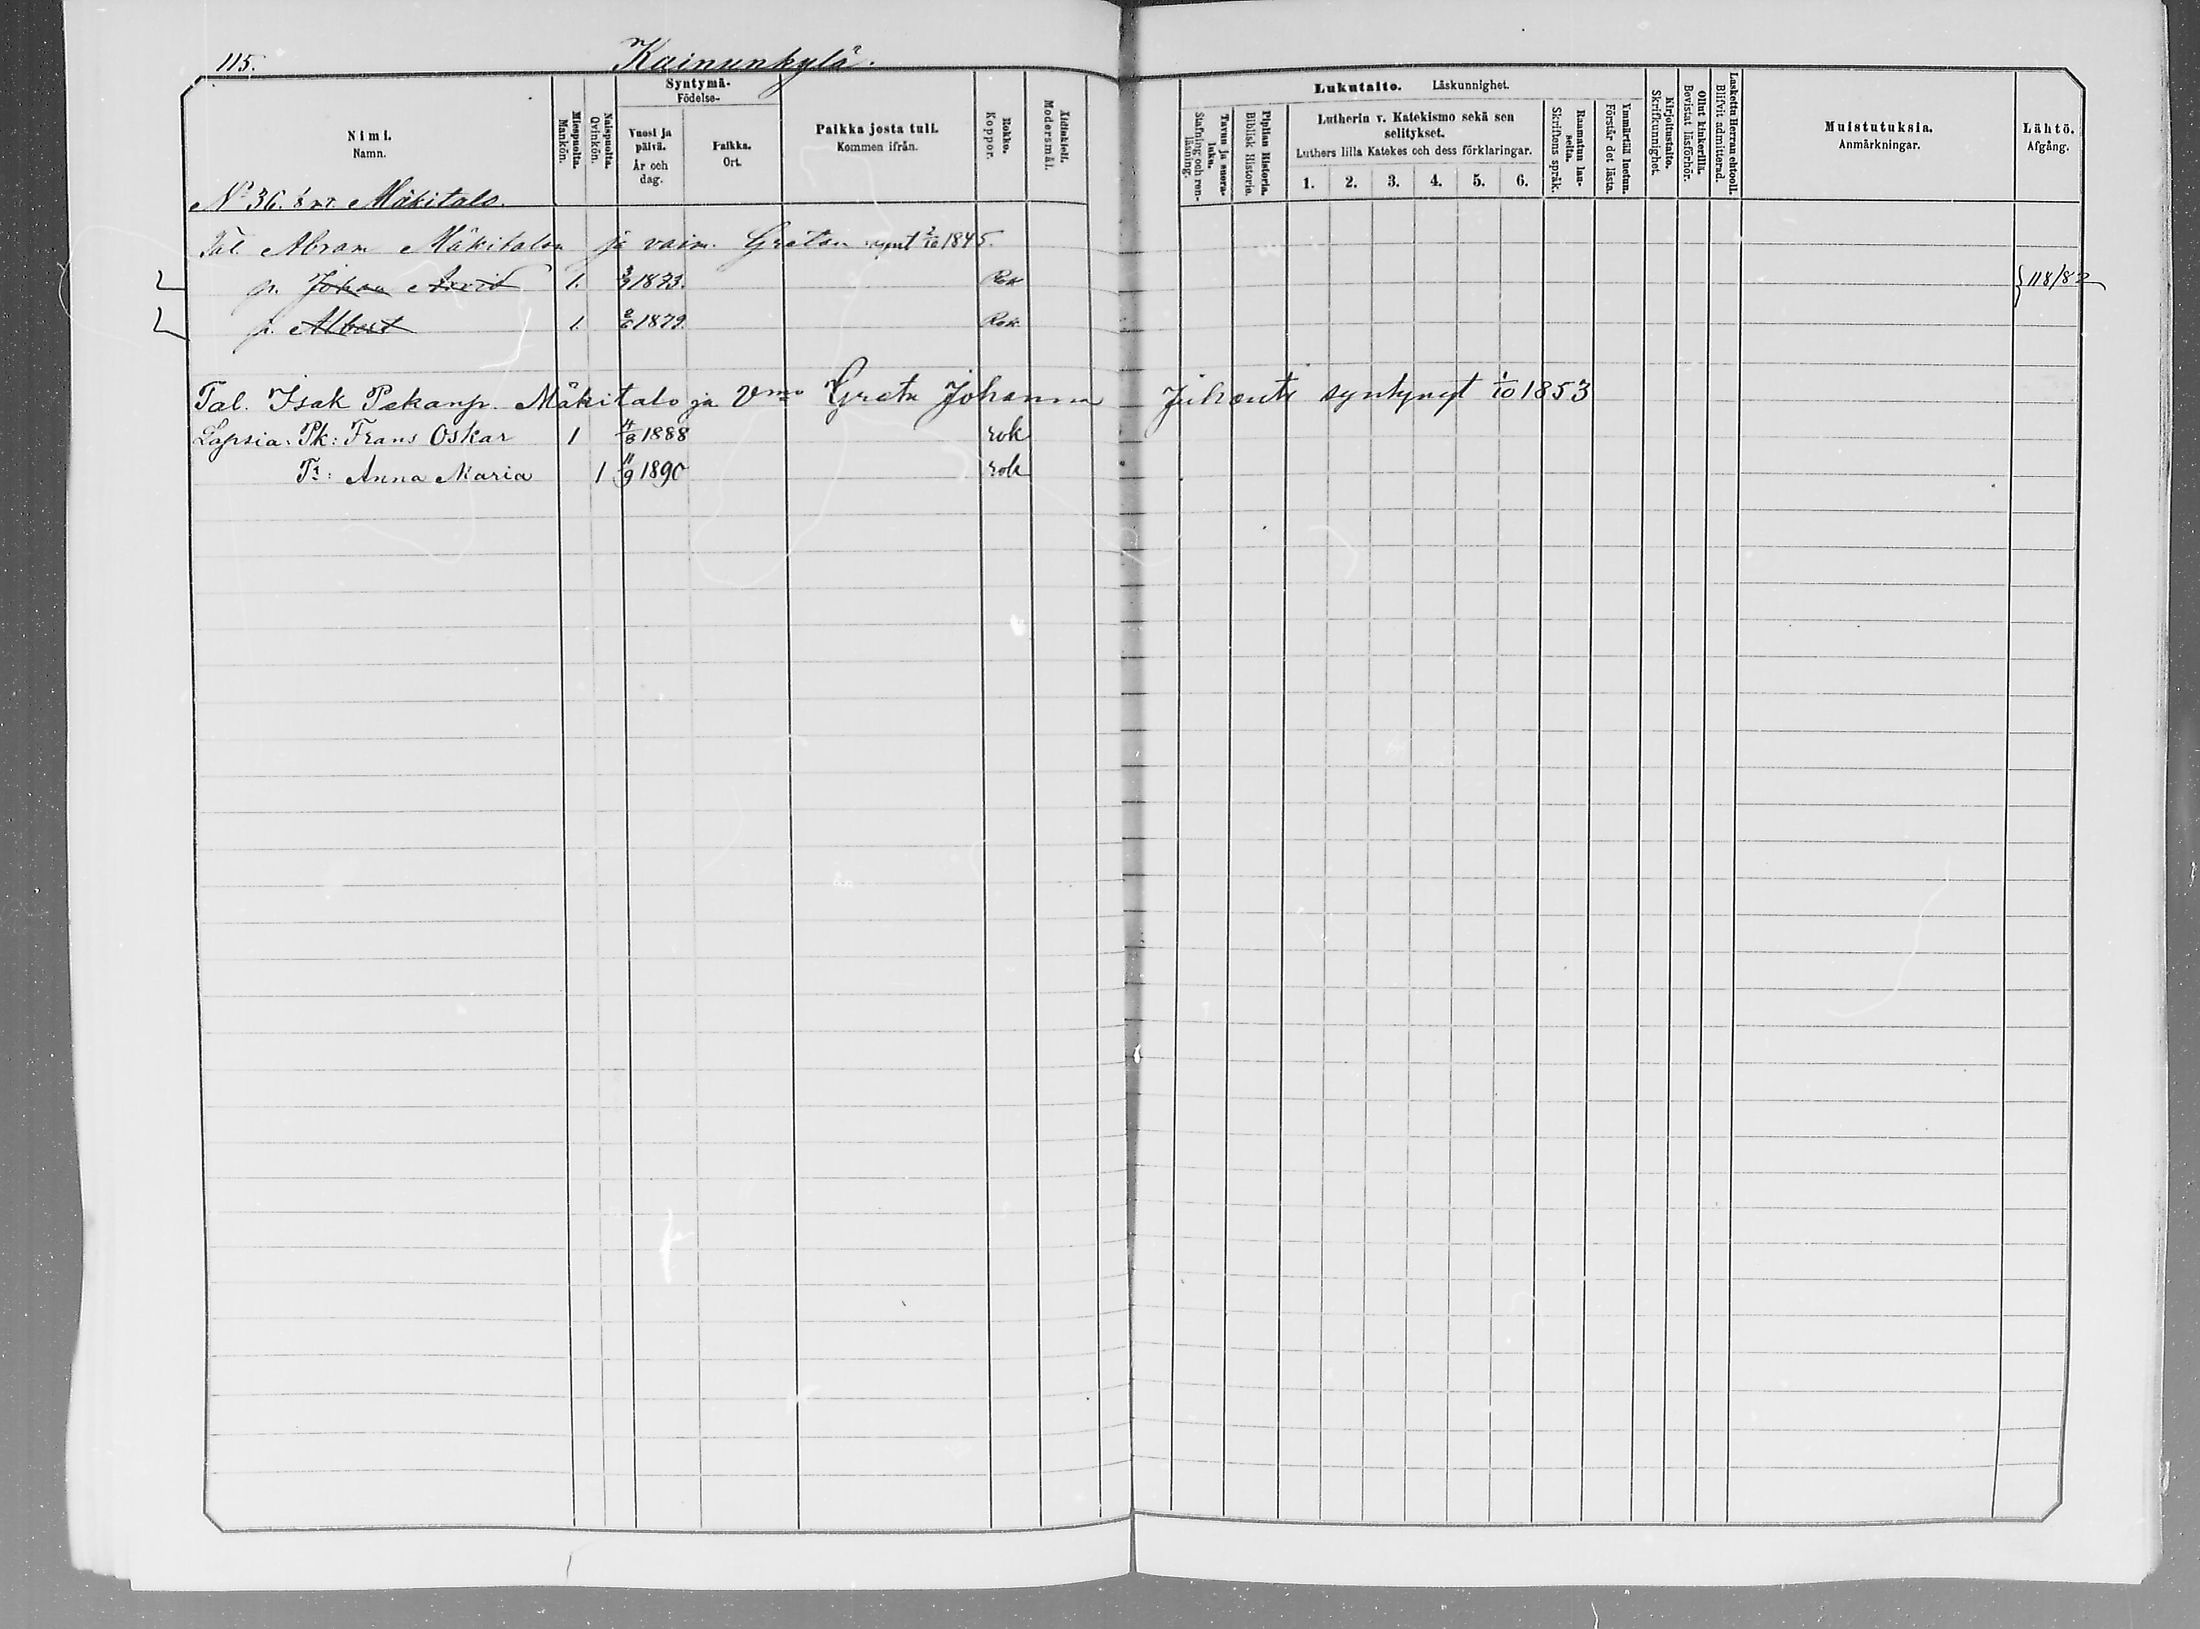 115. Kainunkylä.
Nimi. Namn.
Miespuolta. Mankön.
Naispuolta. Qvinkön.
Syntymä- Födelse-
Vuosi ja päivä. År och dag.
Paikka. Ort.
Paikka josta tuli. Kommen ifrån.
Rokko. Koppor.
Äidinkieli. Modersmål.
Lukutaito. Läskunnighet.
Tavuu ja suora- luku. Stafning och ren- läsning.
Piplian Historia. Biblisk Historie.
Lutherin v. Katekismo sekä sen selitykset.
Luthers lilla Katekes och dess förklaringar.
1. 2. 3. 4. 5. 6.
Raamatun lau- seita. Skriftens språk.
Ymmärtää luetun. Förstår det lästa.
Kirjoitustaito. Skrifkunnighet.
Ollut kinkerillä. Bevistat läsförhör.
Laskettu Herran ehtooll. Blifvit admitterad.
Muistutuksia. Anmärkningar.
Lähtö. Afgång.
No 36. Mäkitalo.
Tal. Abram Mäkitalon ja vaim. Gretan synt 2/10 1845.
p. Johan Arvid 1. 1873. Rok 118/82
p. Albert 1. 1879. Rok
Tal. Isak Pekanp. Mäkitalo ja Vmo Greta Johanna Juhontr syntynyt 1/10 1853
Lapsia: Pk: Frans Oskar 1 4/8 1888 rok
Tr: Anna Maria 1 11/9 1890 rok